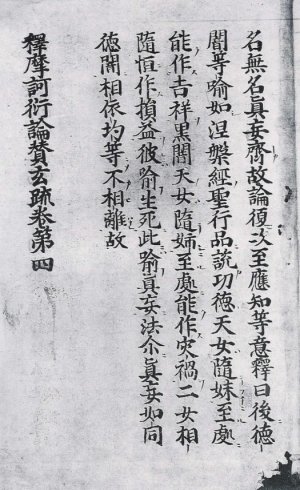 名無名眞妄齊故論復次至應知等意釋曰後德
闇等喻如涅槃經聖行品說功德天女隨妹至處
能作吉祥黑闇天女隨姉至處能作灾禍二女相
隨恒作損益彼喻生死此喻眞妄法尒眞妄如同
德闇相依均等不相離故
釋摩訶衍論贊玄疏卷第四